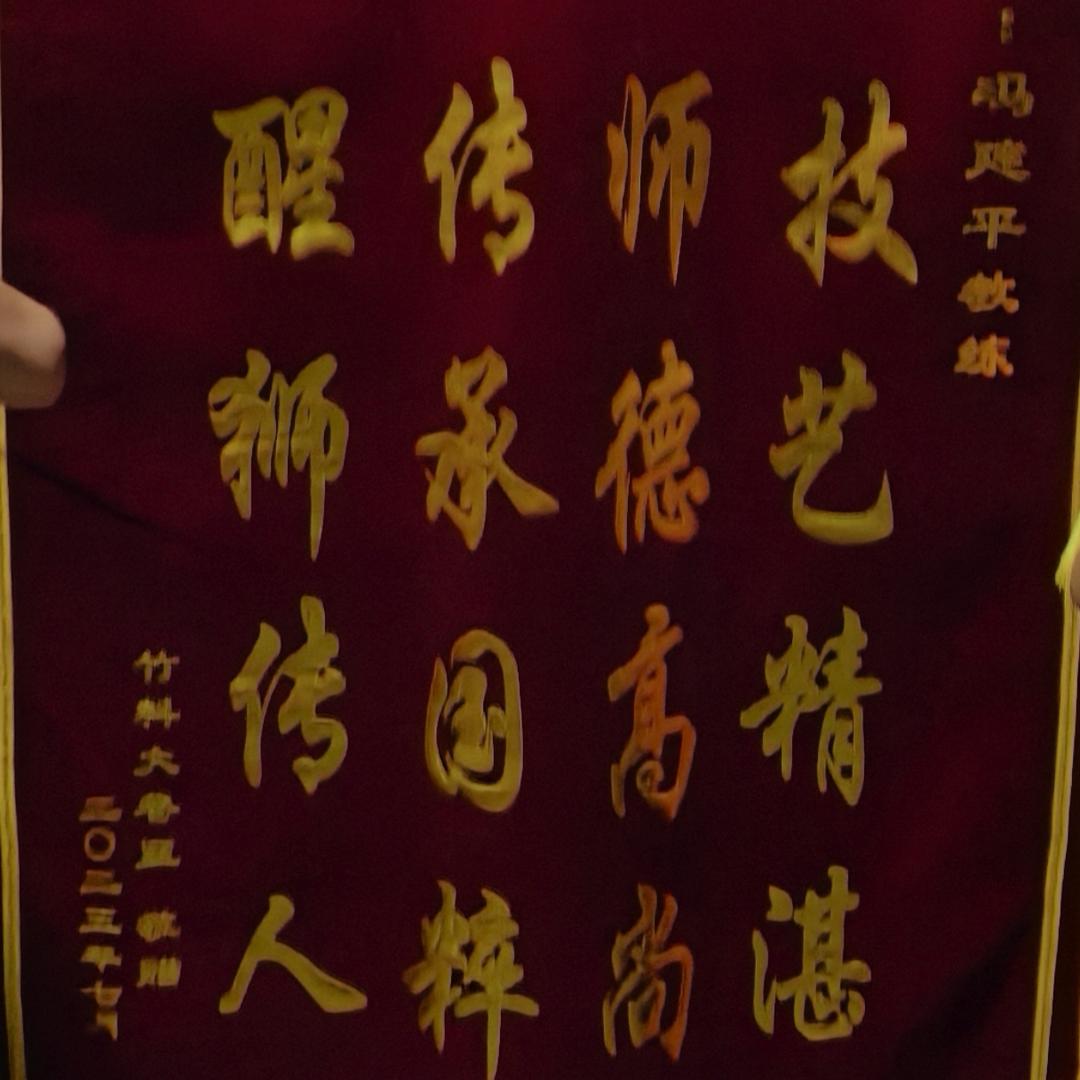 冯建平教练
技艺精湛
师德高尚
传承国粹
醒狮传人
竹料大 敬赠
二〇二三年七月